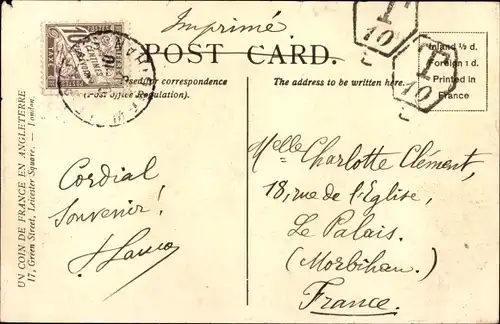 Imprimé
POST CARD.
T
10
C
T
10
C
Inland ½ d.
Foreign 1 d.
Printed in
France
used for correspondence
(Post Office Regulation).
The address to be written here.
UN COIN DE FRANCE EN ANGLETERRE
17, Green Street, Leicester Square. — London.
Cordial
Souvenir!
Melle Charlotte Clément,
18, rue de l'Eglise,
Le Palais.
(Morbihan.)
France.